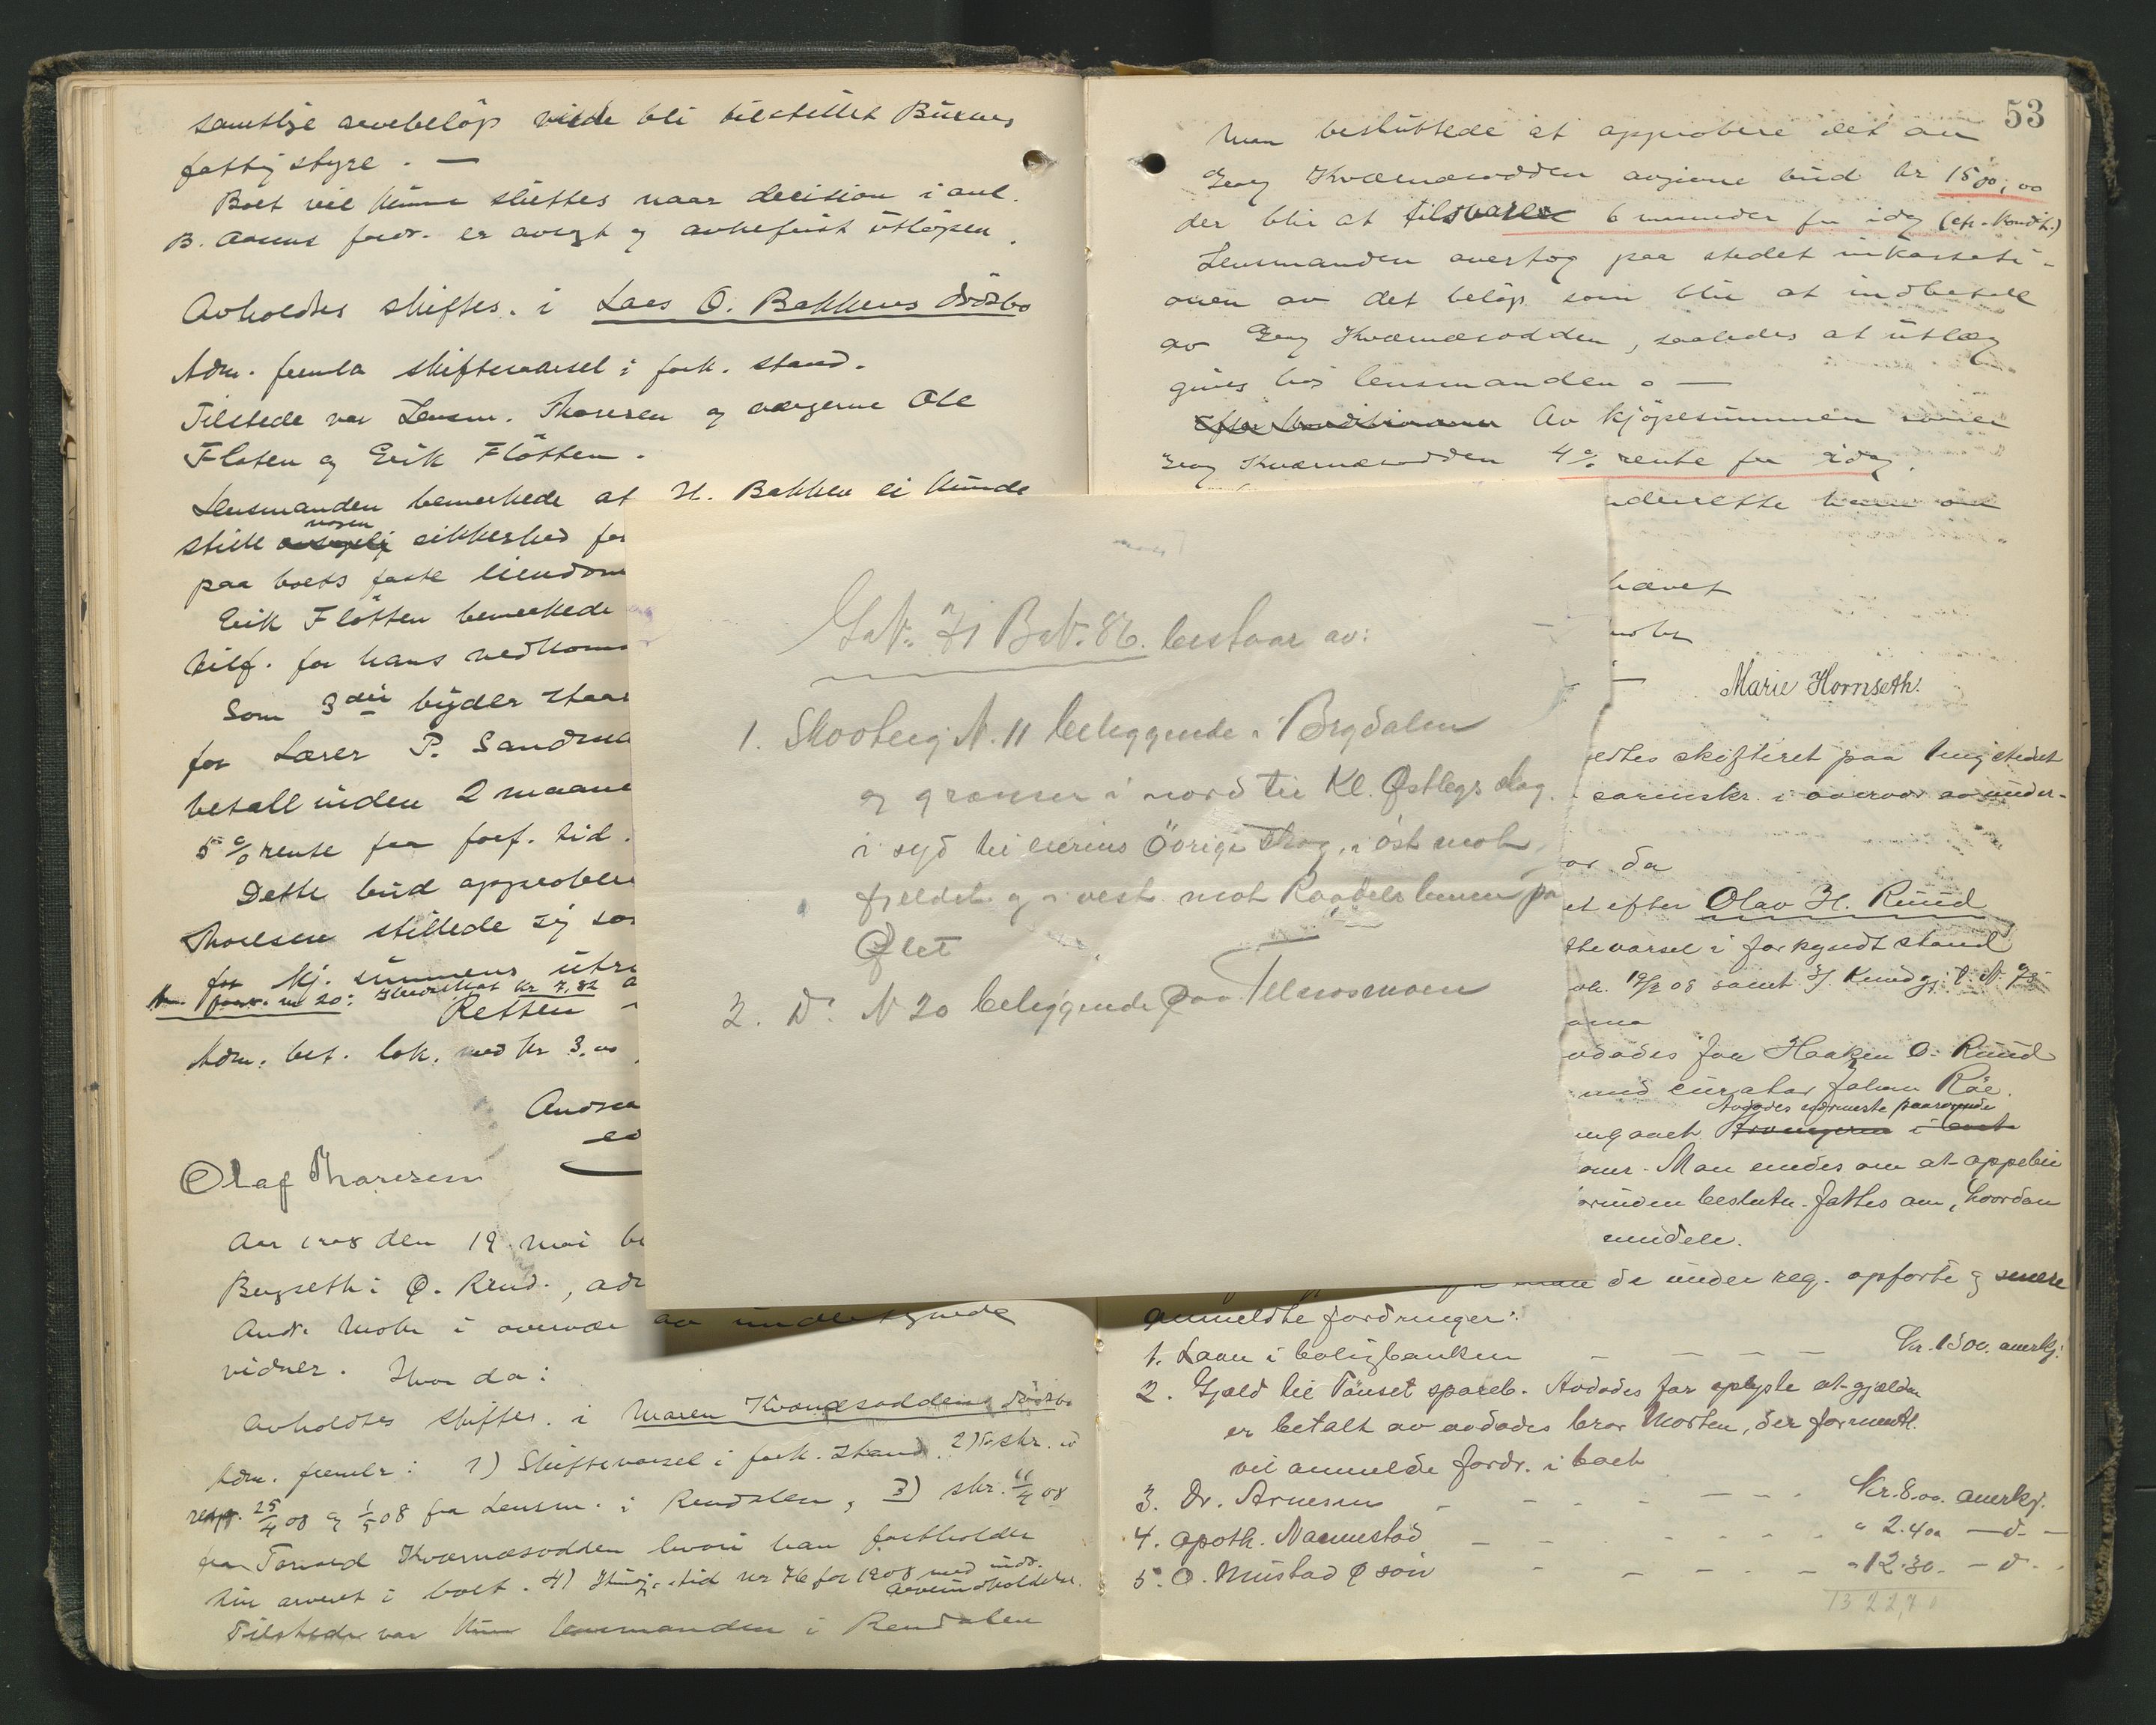 samtlige arvebeløp vilde bli tilstillet Bürens
fattigstyre. —
Boet vil kunne sluttes naar decision i anl.
B. Aasens fordr. er avsagt og ankefrist utløpen.
Avholdtes skiftes. i Lars O. Bakkens dødsbo
Adm. freml. skiftevarsel i fork. stand.
Tilstede var Lensm. Thoresen og værgerne Ole
Floten og Erik Fløtten.
Lensmanden bemerkede at H. Bakken ei kunde
stille nogen sikkerhed for
paa boets faste eiendom
Erik Fløtten bemerkede
tilf. for hans vedkom
Som 3die byder staar
for Lærer P. Sandm
betall inden 2 maane
5 % rente fra forf. tid.
Dette bud approber
Thoresen stillede sig so
for kj. summens utre
fordr. no 20: kr 7,82
Retten
Adm. bet. lok. med kr 3,00
Andrea
Olaf Thoresen
Aar 1908 den 19 mai b
Bergseth i Ø. Rend., ad
Andr. Mohr i overvær av undertegnede
vidner. Hvor da:
Avholdtes skiftes. i Maren Kværnæsoddens dødsbo
Adm. freml: 1) Skiftevarsel i fork. stand. 2) skr.
resp. 25/4 08 og 1/5 08 fra Lensm. i Rendalen, 3) skr. 11/4 08
fra Torvald Kværnæsodden hvori han fastholder
sin arveret i boet. 4) tid nr 76 for 1908 med indr.
Tilstede var kun lensmanden i Rendalen
53
Man besluttede at approbere det av
Georg Kværnæsodden avgivne bud kr 1500,00
der blir at tilsvare 6 maaneder fra idag (efr. kondit.)
Lensmanden overtog paa stedet inkassati-
onen av det beløp som blir at indbetale
av Georg Kværnæsodden, saaledes at utlæg
gives hos lensmanden. —
Efter konditionerne Av kjøpesummen svarer
Georg Kværnæsodden 4 % rente fra idag.
underrette ham om
hævet
Mohr
Marie Hornseth.
edtes skifteret paa tingstedet
sorinskr. i overvær av under-
or da
et efter Olav H. Ruud
ttevarsel i forkyndt stand
19/2 08 samt
avdødes far Haaken O. Ruud
med curator Johan Røe.
Avdødes nærmeste paarørende
Man enedes om at oppebie
beslutn. fattes om, hvordan
midele.
de under reg. opførte og senere
anmeldte fordringer:
1. Laan i boligbanken — — — — Kr. 1300. anerkj.
2. Gjæld til Tønset spareb. Avdødes far oplyste at gjælden
er betalt av avdødes bror Morten, der formentl.
vil anmelde fordr. i boet
3. Dr. Arnesen - - - - Kr. 8.00. anerkj.
4. apoth. Naumestad - - - - " 2.40 — d. —
5. O. Mustad & søn - - - - " 12.30 — d. -
1322,70
GNr. 71 BNr. 86. bestaar av:
1. Skovteig N. 11 beliggende i Brydalen
og grænser i nord til Kl. Østlegs skog.
i syd til eierens övrige skog, i öst mot
fjeldet og i vest mot Raadelsbenen paa
Flet
2. Do N 20 beliggende paa Tellnosmoen